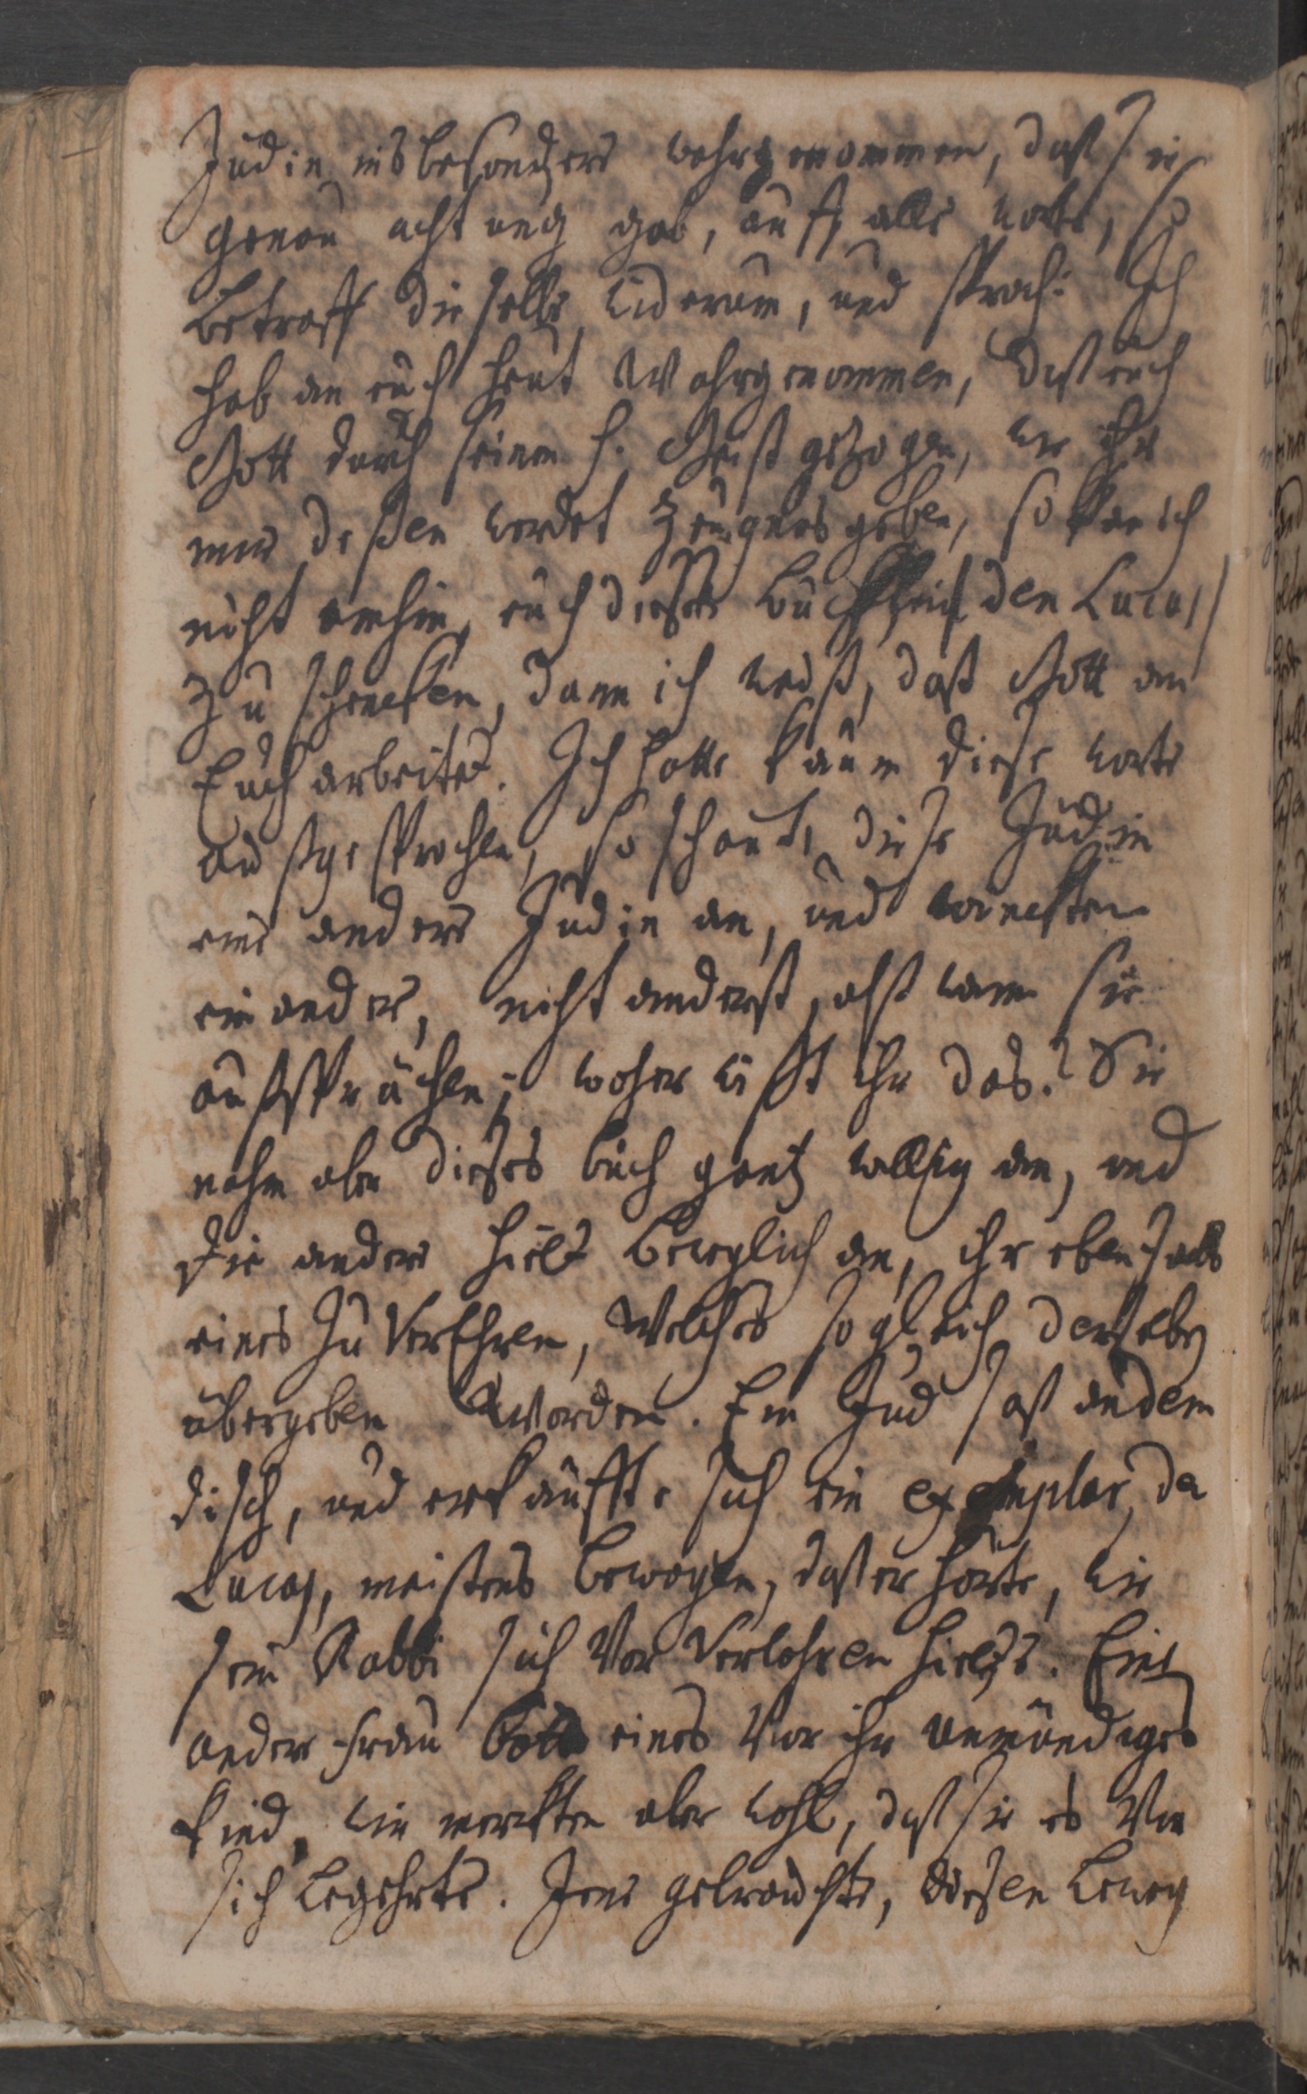 Jüdin insbesonders wahrgenommen, daß sie
genau achtung gab, auff alle worte, so
betraff dieselbe widerum, und sprach: Ich
hab an euch heut wahrgenommen, daß euch
Gott durch seinen h. Geist gezogen, wo ihr
mir deßen werdet zeugnis geben, so kan ich
nicht umhin, euch dießes büchlein den Lucas
zu schencken, dann ich weiß, daß Gott an
Euch arbeitet. Ich hatte kaum diese worte
außgesprochen, so schaute diese Jüdin
eine andere Jüdin an, und winckten
einander, nicht anderst, alß wann sie
außsprächen; woher wißt ihr das? Sie
nahm aber dieses buch gantz willig an, und
die andere hielt beweglich an, ihr ebenfals
eines zu verehren, welches sogleich derselben
übergeben worden. Ein Jud saß an dem
disch, und erkauffte sich ein exemplar, des
Lucas, meistens bewogen, daß er hörte, wie
sein Rabbi sich vor verlohren hielte. Eine
andere frau batte eines vor ihr unmündiges
kind, wir merckten aber wohl, daß sie es vor
sich begehrte. Jene gebrauchte, diesen beweg